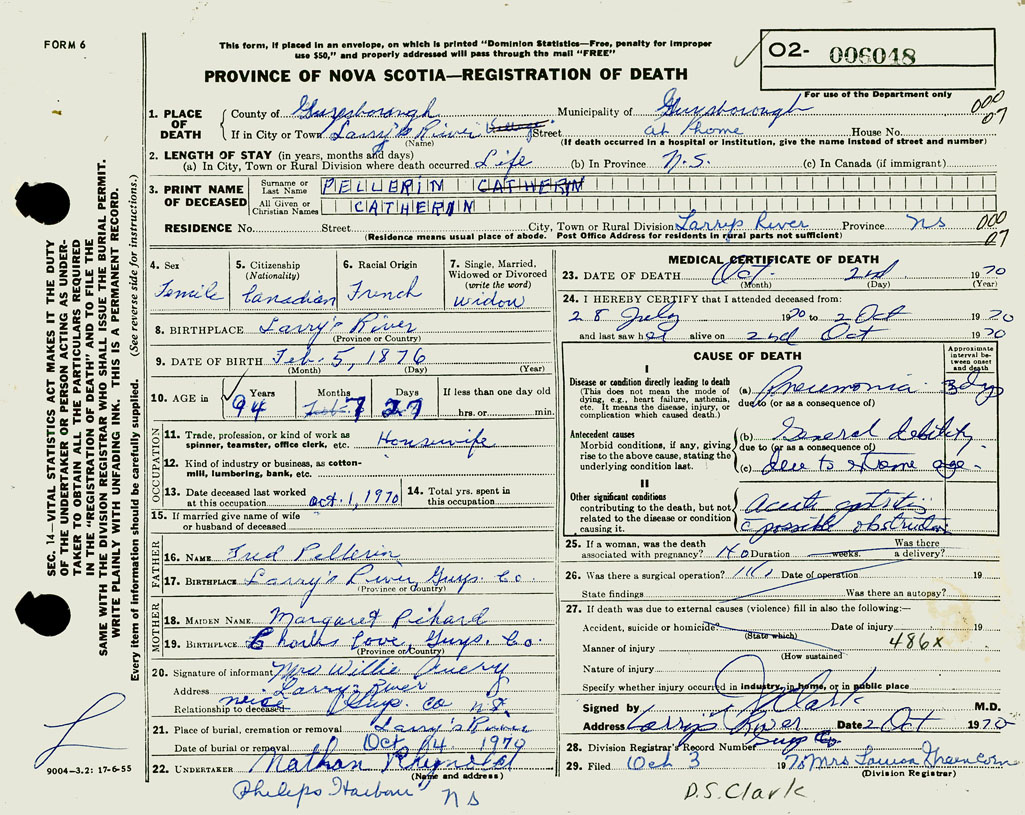 FORM 6
This form, if placed in an envelope, on which is printed "Dominion Statistics—Free, penalty for improper
use $50," and properly addressed will pass through the mail "FREE"
PROVINCE OF NOVA SCOTIA—REGISTRATION OF DEATH
O2- 006048
For use of the Department only
000
07
1. PLACE OF DEATH
County of Guysborough Municipality of Guysborough
If in City or Town Larry's River Street at home House No.
(Name) (If death occurred in a hospital or institution, give the name instead of street and number)
2. LENGTH OF STAY (in years, months and days)
(a) In City, Town or Rural Division where death occurred Life (b) In Province N.S. (c) In Canada (if immigrant)
3. PRINT NAME OF DECEASED
Surname or Last Name PELLERIN CATHERIN
All Given or Christian Names CATHERIN
RESIDENCE No. Street City, Town or Rural Division Larrys River Province NS
(Residence means usual place of abode. Post Office Address for residents in rural parts not sufficient)
000
07
SEC. 14—VITAL STATISTICS ACT MAKES IT THE DUTY
OF THE UNDERTAKER OR PERSON ACTING AS UNDER-
TAKER TO OBTAIN ALL THE PARTICULARS REQUIRED
IN THE "REGISTRATION OF DEATH" AND TO FILE THE
SAME WITH THE DIVISION REGISTRAR WHO SHALL ISSUE THE BURIAL PERMIT.
WRITE PLAINLY WITH UNFADING INK. THIS IS A PERMANENT RECORD.
Every item of information should be carefully supplied. (See reverse side for instructions.)
4. Sex
Female
5. Citizenship
(Nationality)
Canadian
6. Racial Origin
French
7. Single, Married,
Widowed or Divorced
(write the word)
Widow
8. BIRTHPLACE Larry's River
(Province or Country)
9. DATE OF BIRTH Feb. 5, 1876
(Month) (Day) (Year)
10. AGE in
Years Months Days If less than one day old
94 7 27 hrs. or min.
OCCUPATION
11. Trade, profession, or kind of work as
spinner, teamster, office clerk, etc. Housewife
12. Kind of industry or business, as cotton-
mill, lumbering, bank, etc.
13. Date deceased last worked
at this occupation Oct. 1, 1970
14. Total yrs. spent in
this occupation
15. If married give name of wife
or husband of deceased
FATHER
16. NAME Fred Pellerin
17. BIRTHPLACE Larry's River, Guys. Co
(Province or Country)
MOTHER
18. MAIDEN NAME Margaret Pichard
19. BIRTHPLACE Charlos Cove, Guys. Co.
(Province or Country)
20. Signature of informant Mrs Willie Avery
Address Larry's River
Relationship to deceased neice Guys. Co NS
21. Place of burial, cremation or removal Larry's River
Date of burial or removal Oct 4, 1970
22. UNDERTAKER Nathan
(Name and address)
Philips Harbour NS
9004—3.2: 17-6-55
MEDICAL CERTIFICATE OF DEATH
23. DATE OF DEATH Oct. 2nd 1970
(Month) (Day) (Year)
24. I HEREBY CERTIFY that I attended deceased from:
28 July 1970 to 2 Oct 1970
and last saw her alive on 2nd Oct 1970
CAUSE OF DEATH
Approximate
interval be-
tween onset
and death
I
Disease or condition directly leading to death
(This does not mean the mode of
dying, e.g., heart failure, asthenia,
etc. It means the disease, injury, or
complication which caused death.)
(a) Pneumonia 3 dys
due to (or as a consequence of)
Antecedent causes
Morbid conditions, if any, giving
rise to the above cause, stating the
underlying condition last.
(b) General debility
due to (or as a consequence of)
(c) due to extreme age.
II
Other significant conditions
contributing to the death, but not
related to the disease or condition
causing it.
Acute
c possible obstruction
25. If a woman, was the death
associated with pregnancy? No Duration weeks. Was there
a delivery?
26. Was there a surgical operation? Date of operation 19
State findings Was there an autopsy?
27. If death was due to external causes (violence) fill in also the following:—
Accident, suicide or homicide? Date of injury 19
(State which)
Manner of injury 486x
(How sustained
Nature of injury
Specify whether injury occurred in industry, in home, or in public place
Signed by Clark M.D.
Address Larry's River Date 2 Oct 1970
Guys Co
28. Division Registrar's Record Number
29. Filed Oct 3 1970 Mrs Louisa Greencorn
(Division Registrar)
D.S. Clark